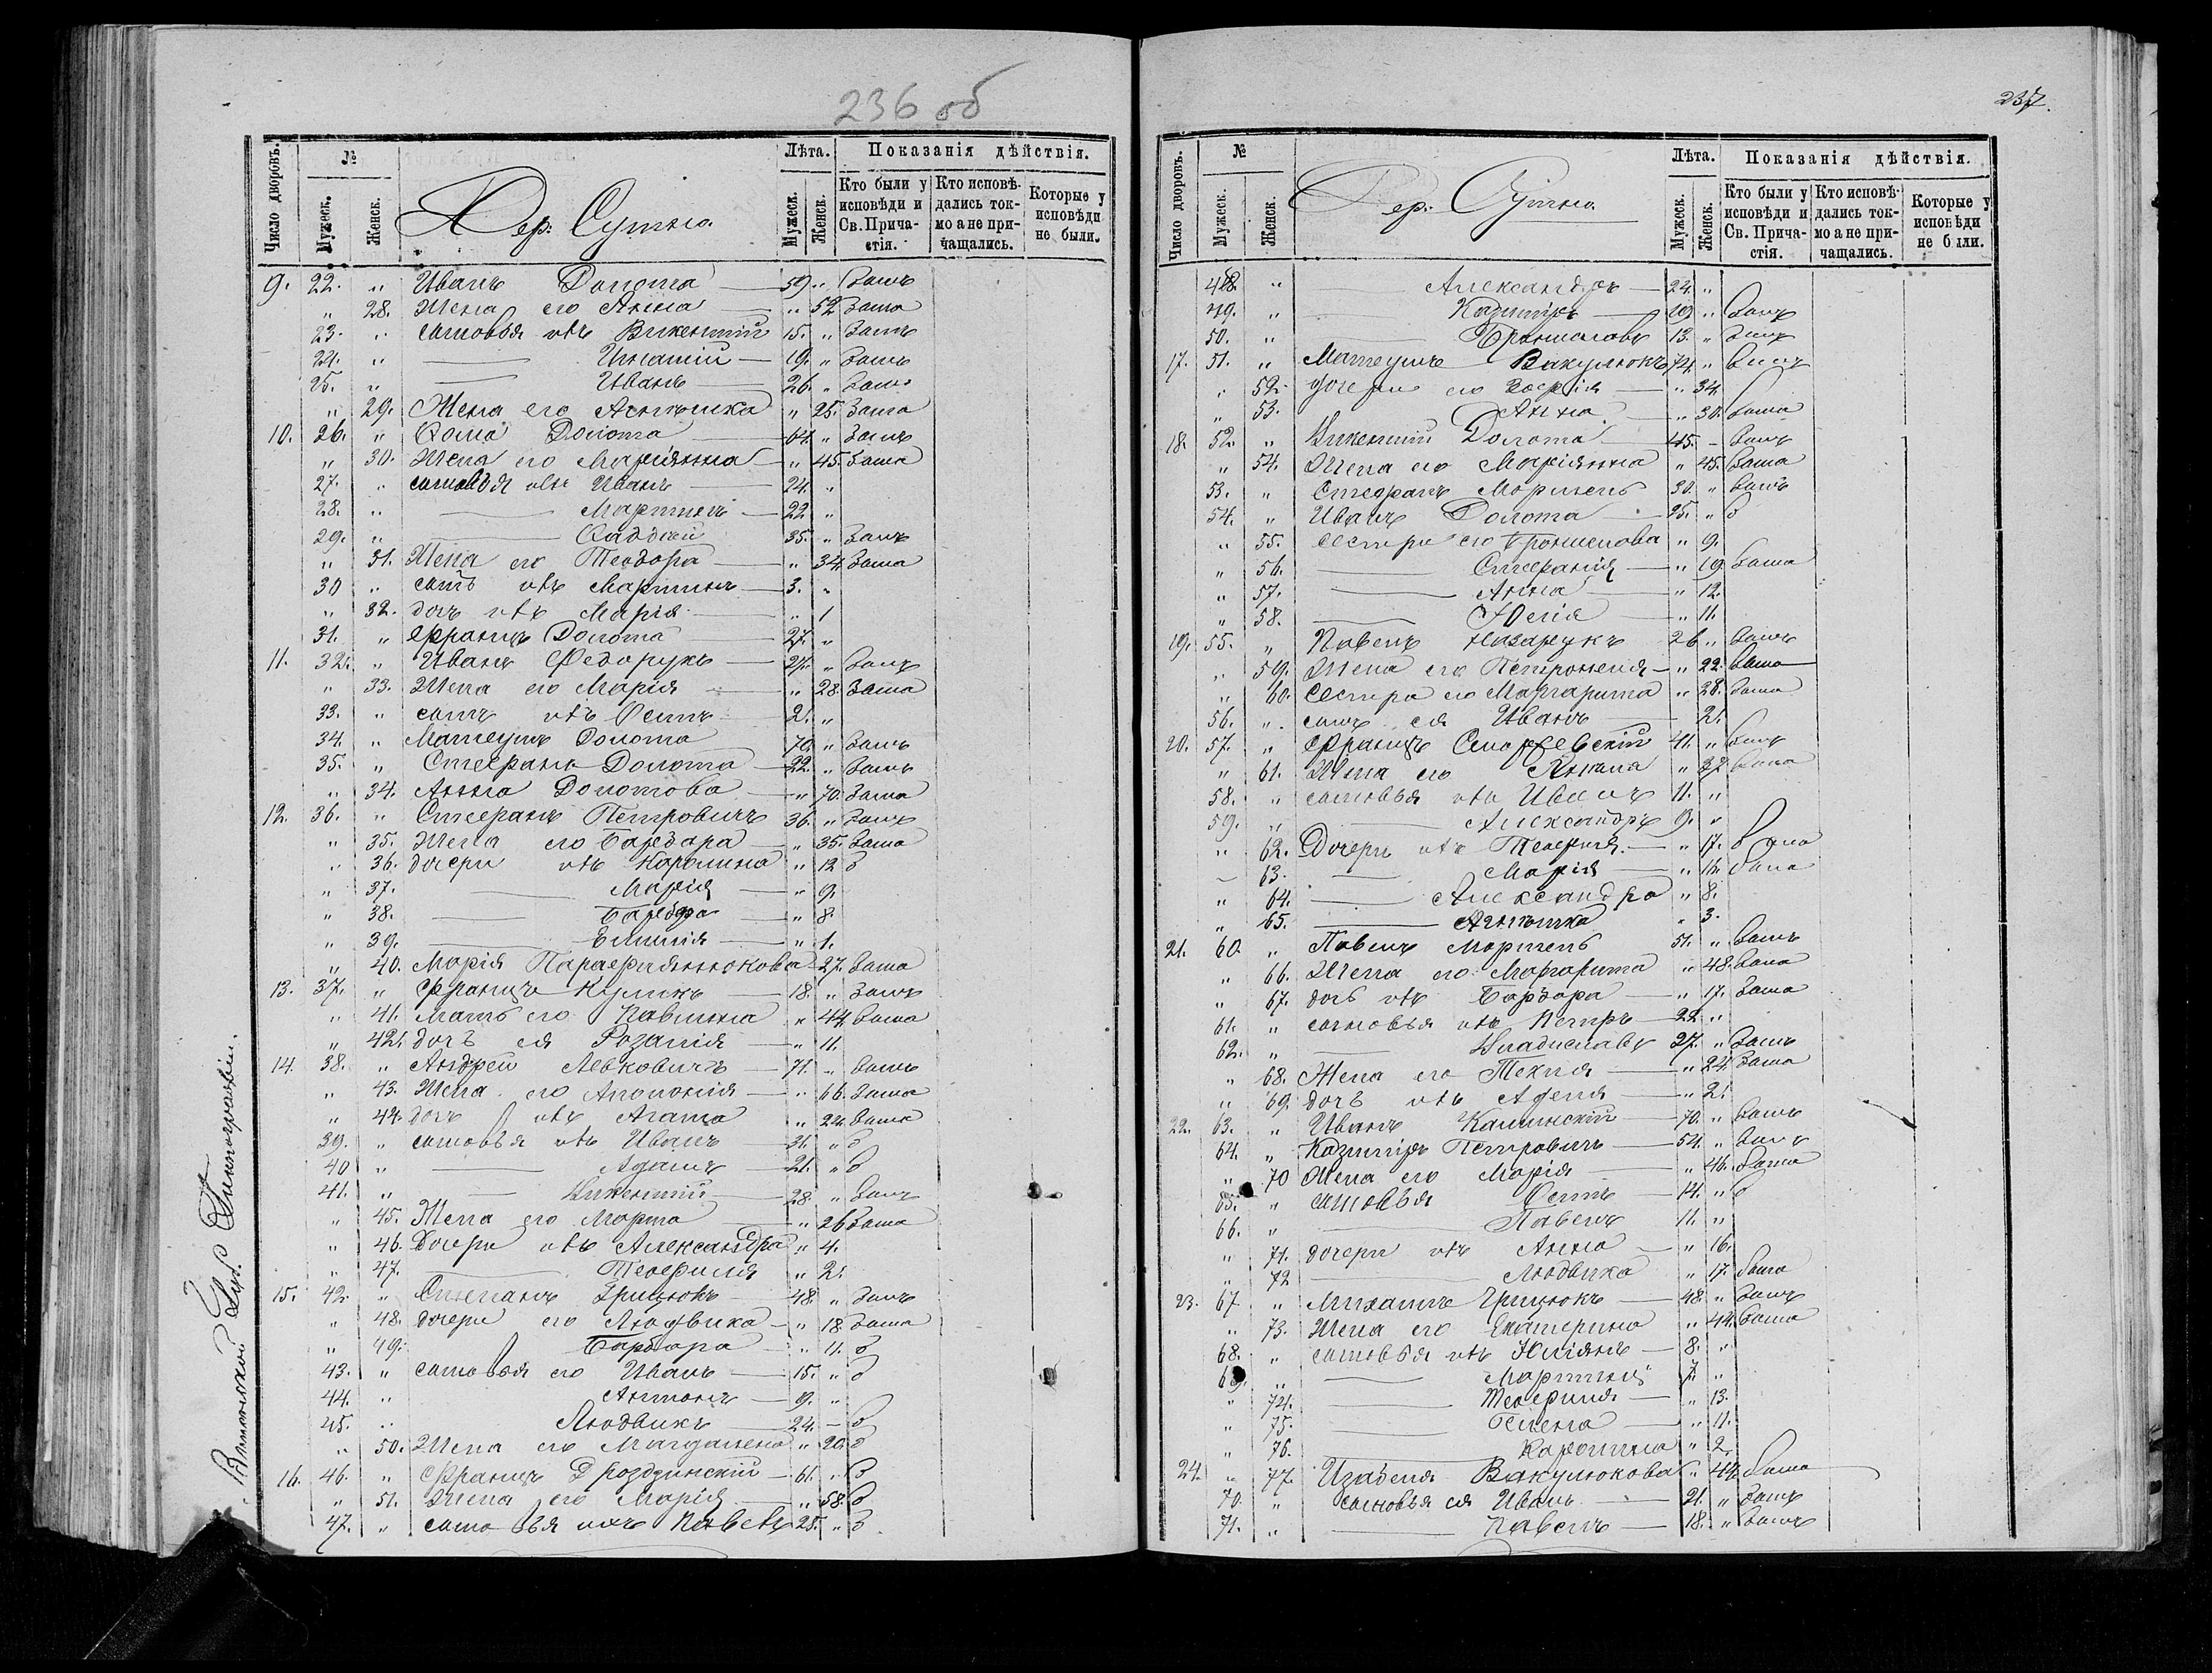 236 об
Число дворовъ. № Мужеск. Женск. Дер. Сутно. Лѣта. Мужеск. Женск. Показанія дѣйствія. Кто были у исповѣди и Св. Причастія. Кто исповѣдались токмо а не причащались. Которые у исповѣди не были.
9. 22. „ Иванъ Долота 59. „ Былъ
„ 28. Жена его Анна „ 52 Была
23. „ сыновья ихъ Викентий 15. „ Былъ
24. „ Игнатій 19. „ Былъ
25. „ Иванъ 26. „ Былъ
„ 29. Жена его Агнѣшка „ 25. Была
10. 26. „ Ѳома Долота 64. „ Былъ
„ 30. Жена его Маріянна „ 45. Была
27. „ сыновья ихъ Иванъ 24. „
28. „ Мартинъ 22. „
29. „ Ѳаддей 35. „ Былъ
„ 31. Жена его Теодора „ 34. Была
30 „ сынъ ихъ Мартинъ 3. „
„ 32. дочь ихъ Марія „ 1
31. „ Францъ Долота 27. „
11. 32. „ Иванъ Федорукъ 27. „ Былъ
„ 33. Жена его Марія „ 28. Была
33. „ сынъ ихъ Осипъ 2. „
34. „ Матеушъ Долота 70. „ Былъ
35. „ Стефанъ Долота 22. „ Былъ
„ 34. Анна Долотова „ 70. Была
12. 36. „ Стефанъ Петровичъ 36. „ Былъ
„ 35. Жена его Барбара „ 35. Была
„ 36. дочери ихъ Каролина „ 12 б
„ 37. Марія „ 9.
„ 38. Барбара „ 8.
„ 39. Эмилія „ 1.
„ 40. Марія Параѳиянюкова 27. Была
13. 37. „ Францъ Куликъ 18. „ Былъ
„ 41. Мать его Павлина „ 44. Была
„ 42. дочь ея Розалія „ 11.
14. 38. „ Андрей Левковичъ 71. „ Былъ
„ 43. Жена его Аполонія „ 66. Была
„ 44. дочь ихъ Агата „ 22. Была
39. „ сыновья ихъ Иванъ 31. „ б
40 „ Адамъ 21. „ б
41. „ Викентій 28. „ Былъ
„ 45. Жена его Марта „ 26 Была
„ 46. Дочери ихъ Александра „ 4.
„ 47. Теофиля „ 2.
15. 42. „ Степанъ Грицюкъ 48. „ Былъ
„ 48. дочери его Людвика „ 18. Была
„ 49. Барбара „ 11. б
43. „ сыновья его Иванъ 15. „ б
44. „ Антонъ 9. „
45. „ Людвикъ 24. – б
„ 50. Жена его Магдалена „ 20. б
16. 46. „ Францъ Дроздзинскій 61. „ б
„ 51. Жена его Марія „ 58. б
47. „ сыновья ихъ Павелъ 25. „ б
Типографіи.
237.
Число дворовъ. № Мужеск. Женск. Дер. Сутно. Лѣта. Мужеск. Женск. Показанія дѣйствія. Кто были у исповѣди и Св. Причастія. Кто исповѣдались токмо а не причащались. Которые у исповѣди не были.
48. „ Александръ 22. „
49. „ Казиміръ 19. „ Былъ
50. „ Брониславъ 13. „ Былъ
17. 51. „ Матеушъ Вакулюкъ 74. „ Былъ
„ 52. дочери его Зофія „ 34.
„ 53. Анна „ 30. Была
18. 52. „ Викентій Долота 45. – Былъ
„ 54. Жена его Маріянна „ 45. Была
53. „ Стефанъ 30. „ Былъ
54. „ Иванъ Долота 25. „ б
„ 55. сестры его „ 9.
„ 56. Стефанія „ 19. Была
„ 57. Анна „ 12.
„ 58. Юлія „ 11.
19. 55. „ Павелъ Назарукъ 26 „ Былъ
„ 59. Жена его Петронеля „ 22. Была
„ 60. Сестра его Маргарита „ 28. Была
56. „ сынъ ея Иванъ 2.
20. 57. „ Францъ 41. „ Былъ
„ 61. Жена его „ 37 Была
58. „ сыновья ихъ Иванъ 11. „
59. „ Александръ 9. „
„ 62. Дочери ихъ Теофиля „ 17. Была
– 63. Марія „ 16. Была
„ 64. Александра „ 8.
„ 65. Агнѣшка „ 3.
21. 60. „ Павелъ 51. „ Былъ
„ 66. Жена его Маргарита „ 48. Была
„ 67. дочь ихъ Барбара „ 17. Была
61. „ сыновья ихъ Петръ 22. „
62. „ Владиславъ 27. „ Былъ
„ 68. Жена его Текля „ 24. Была
„ 69. дочь ихъ Аделя „ 2.
22. 63. „ Иванъ Калинскій 70. „ Былъ
64. „ Казиміръ Петровичъ 54. „ Былъ
„ 70 Жена его Марія „ 46. Была
65. „ сыновья Осипъ 14. „ б
66. „ Павелъ 11. „
„ 71. дочери ихъ Анна „ 16.
„ 72 Людвика „ 17. Была
23. 67 „ Михаилъ Грицюкъ 48. „ Былъ
„ 73. Жена его Екатерина „ 44. Была
68. „ сыновья ихъ Юліянъ 8. „
69. „ Мартинъ 7. „
„ 74. Теофиля „ 13.
„ 75. Елена „ 11.
„ 76. Каролина „ 2
24. „ 77. Изабеля Вакулюкова „ 44. Была
70. „ сыновья ея Иванъ 21. „ Былъ
71. „ Павелъ 18. „ Былъ